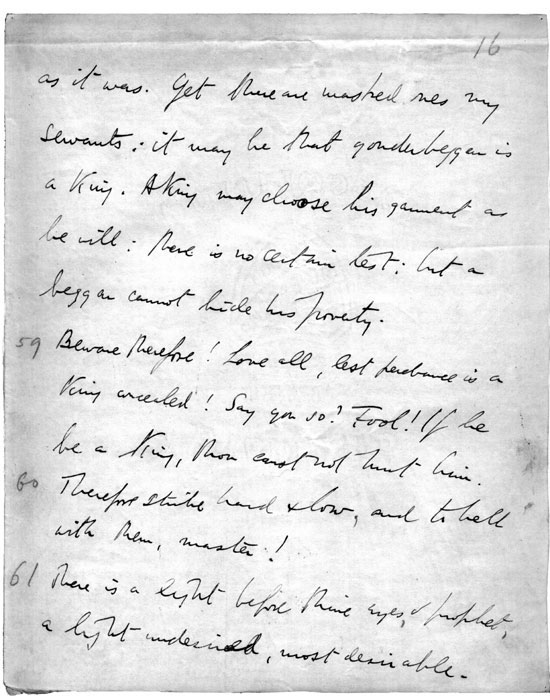 16
as it was. Yet there are masked ones my
servants: it may be that yonder beggar is
a King. A King may choose his garment as
he will: there is no certain test: but a
beggar cannot hide his poverty.
59 Beware therefore! Love all, lest perchance is a
King concealed! Say you so? Fool! If he
be a King, thou canst not hurt him.
60 Therefore strike hard & low, and to hell
with them, master!
61 There is a light before thine eyes, o prophet,
a light undesired, most desirable.